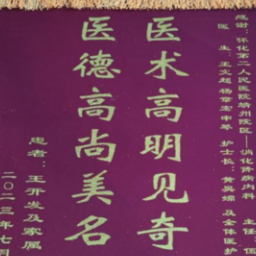 感谢：怀化第二人民医院靖州院区——消化肾病内科 主任
医生：王文 杨 申琴 护士长：黄 及全体医护
医术高明见奇
医德高尚美名
患者：王开发及家属
二〇二三年七